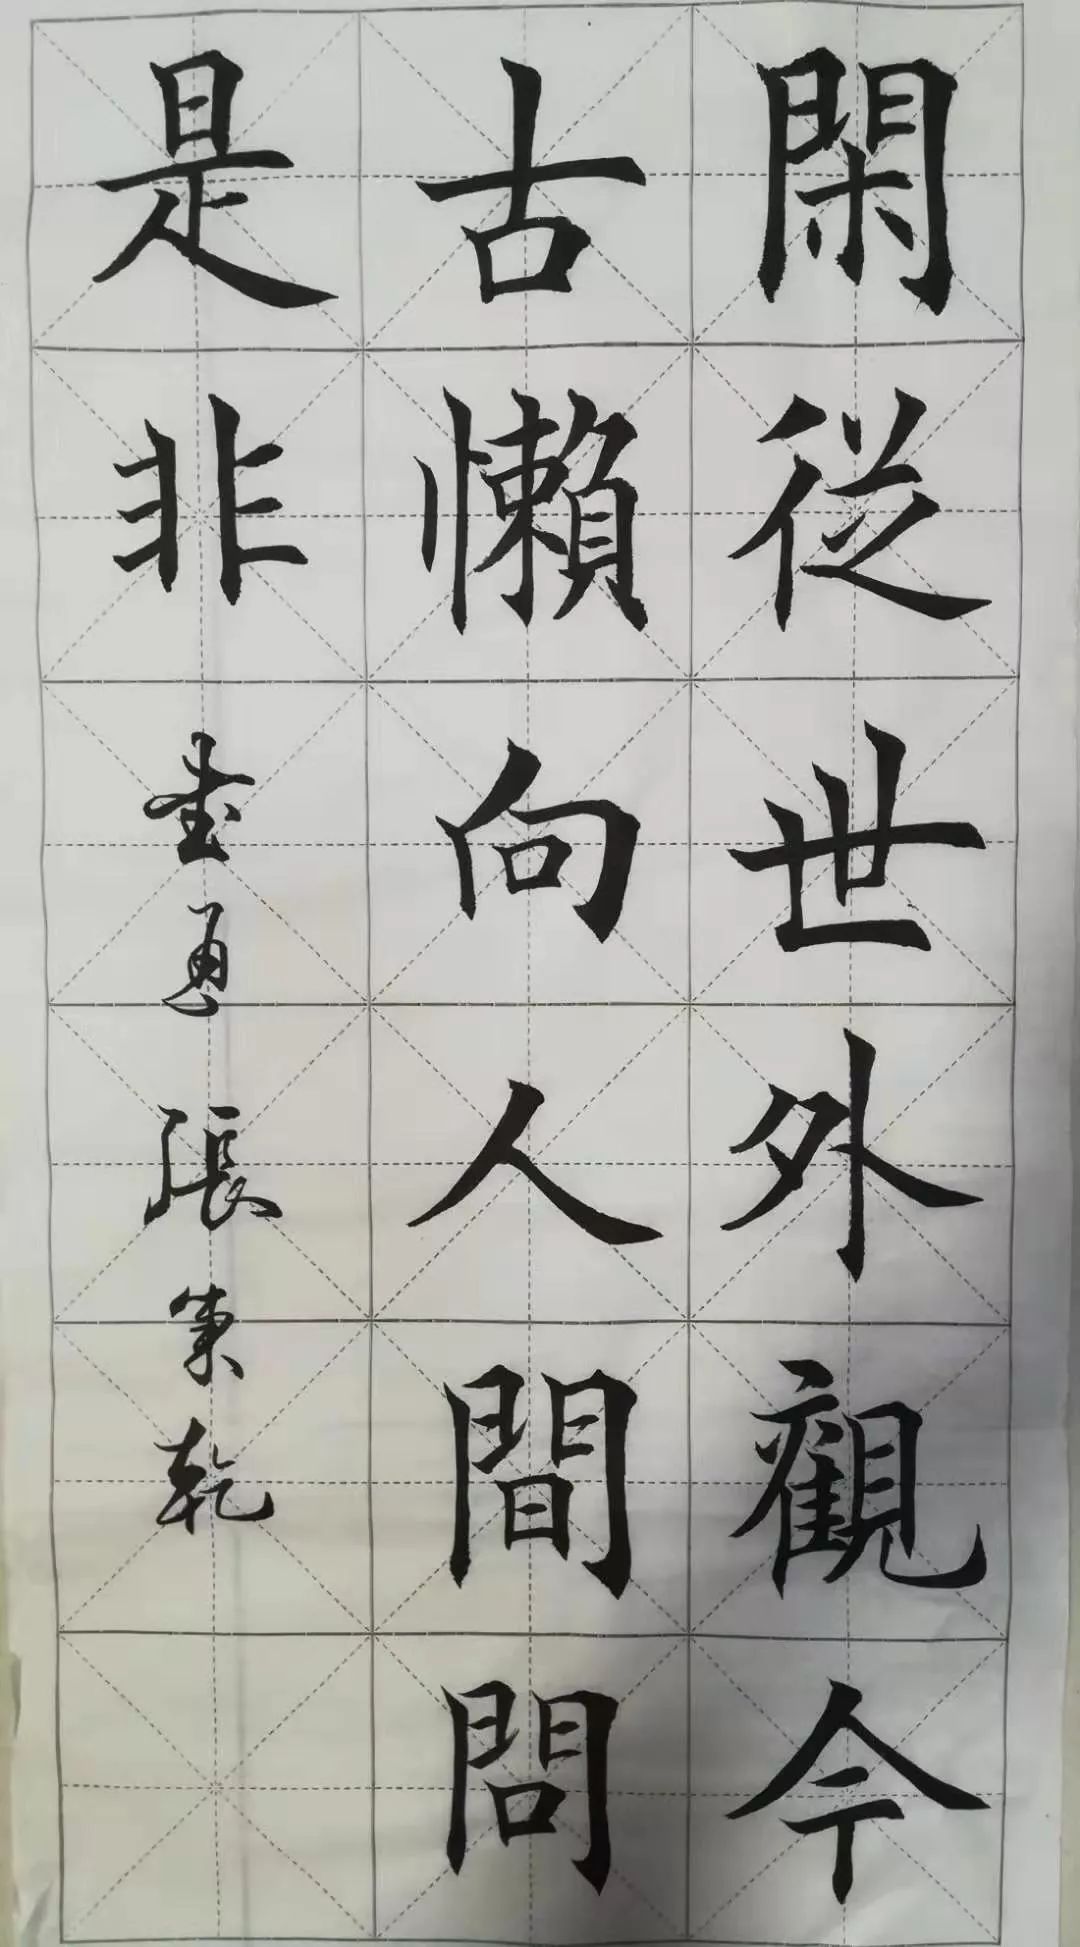 閑從世外觀今
古懶向人間問
是非
張策乾